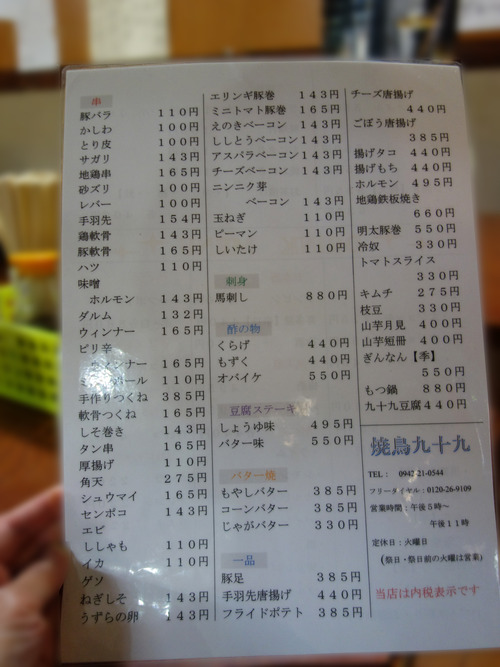 串
豚バラ 110円
かしわ 100円
とり皮 100円
サガリ 143円
地鶏串 165円
砂ズリ 100円
レバー 100円
手羽先 154円
鶏軟骨 143円
豚軟骨 165円
ハツ 110円
味噌
ホルモン 143円
ダルム 132円
ウィンナー 165円
ピリ辛
ウィンナー 165円
110円
手作りつくね 385円
軟骨つくね 165円
しそ巻き 143円
タン串 165円
厚揚げ 110円
角天 275円
シュウマイ 165円
センポコ 143円
エビ
ししゃも 110円
イカ 110円
ゲソ
ねぎしそ 143円
うずらの卵 143円
エリンギ豚巻 143円
ミニトマト豚巻 165円
えのきベーコン 143円
ししとうベーコン 143円
アスパラベーコン 143円
チーズベーコン 143円
ニンニク芽
ベーコン 143円
玉ねぎ 110円
ピーマン 110円
しいたけ 110円
刺身
馬刺し 880円
酢の物
くらげ 440円
もずく 440円
オバイケ 550円
豆腐ステーキ
しょうゆ味 495円
バター味 550円
バター焼
もやしバター 385円
コーンバター 385円
じゃがバター 330円
一品
豚足 385円
手羽先唐揚げ 440円
フライドポテト 385円
チーズ唐揚げ
440円
ごぼう唐揚げ
385円
揚げタコ 440円
揚げもち 440円
ホルモン 495円
地鶏鉄板焼き
660円
明太豚巻 550円
冷奴 330円
トマトスライス
330円
キムチ 275円
枝豆 330円
山芋月見 400円
山芋短冊 400円
ぎんなん【季】
550円
もつ鍋 880円
九十九豆腐 440円
焼鳥九十九
TEL: 0942-21-0544
フリーダイヤル:0120-26-9109
営業時間:午後5時~
午後11時
定休日:火曜日
(祭日・祭日前の火曜は営業)
当店は内税表示です